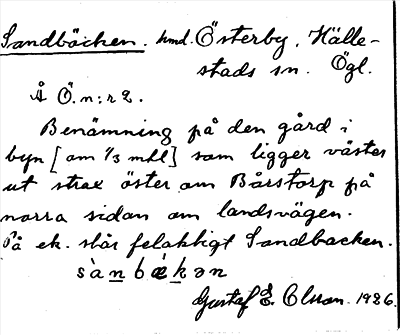 Sandbäcken. hmd. Österby, Hälle-
stads sn. Ögl.
Å Ö.n:r 2.
Benämning på den gård i
byn [om 1/3 mtl] som ligger väster
ut strax öster om Bårstorp på
norra sidan om landsvägen.
På ek. står felaktigt Sandbacken.
sànbækən
Gustaf E. Olsson. 1926.